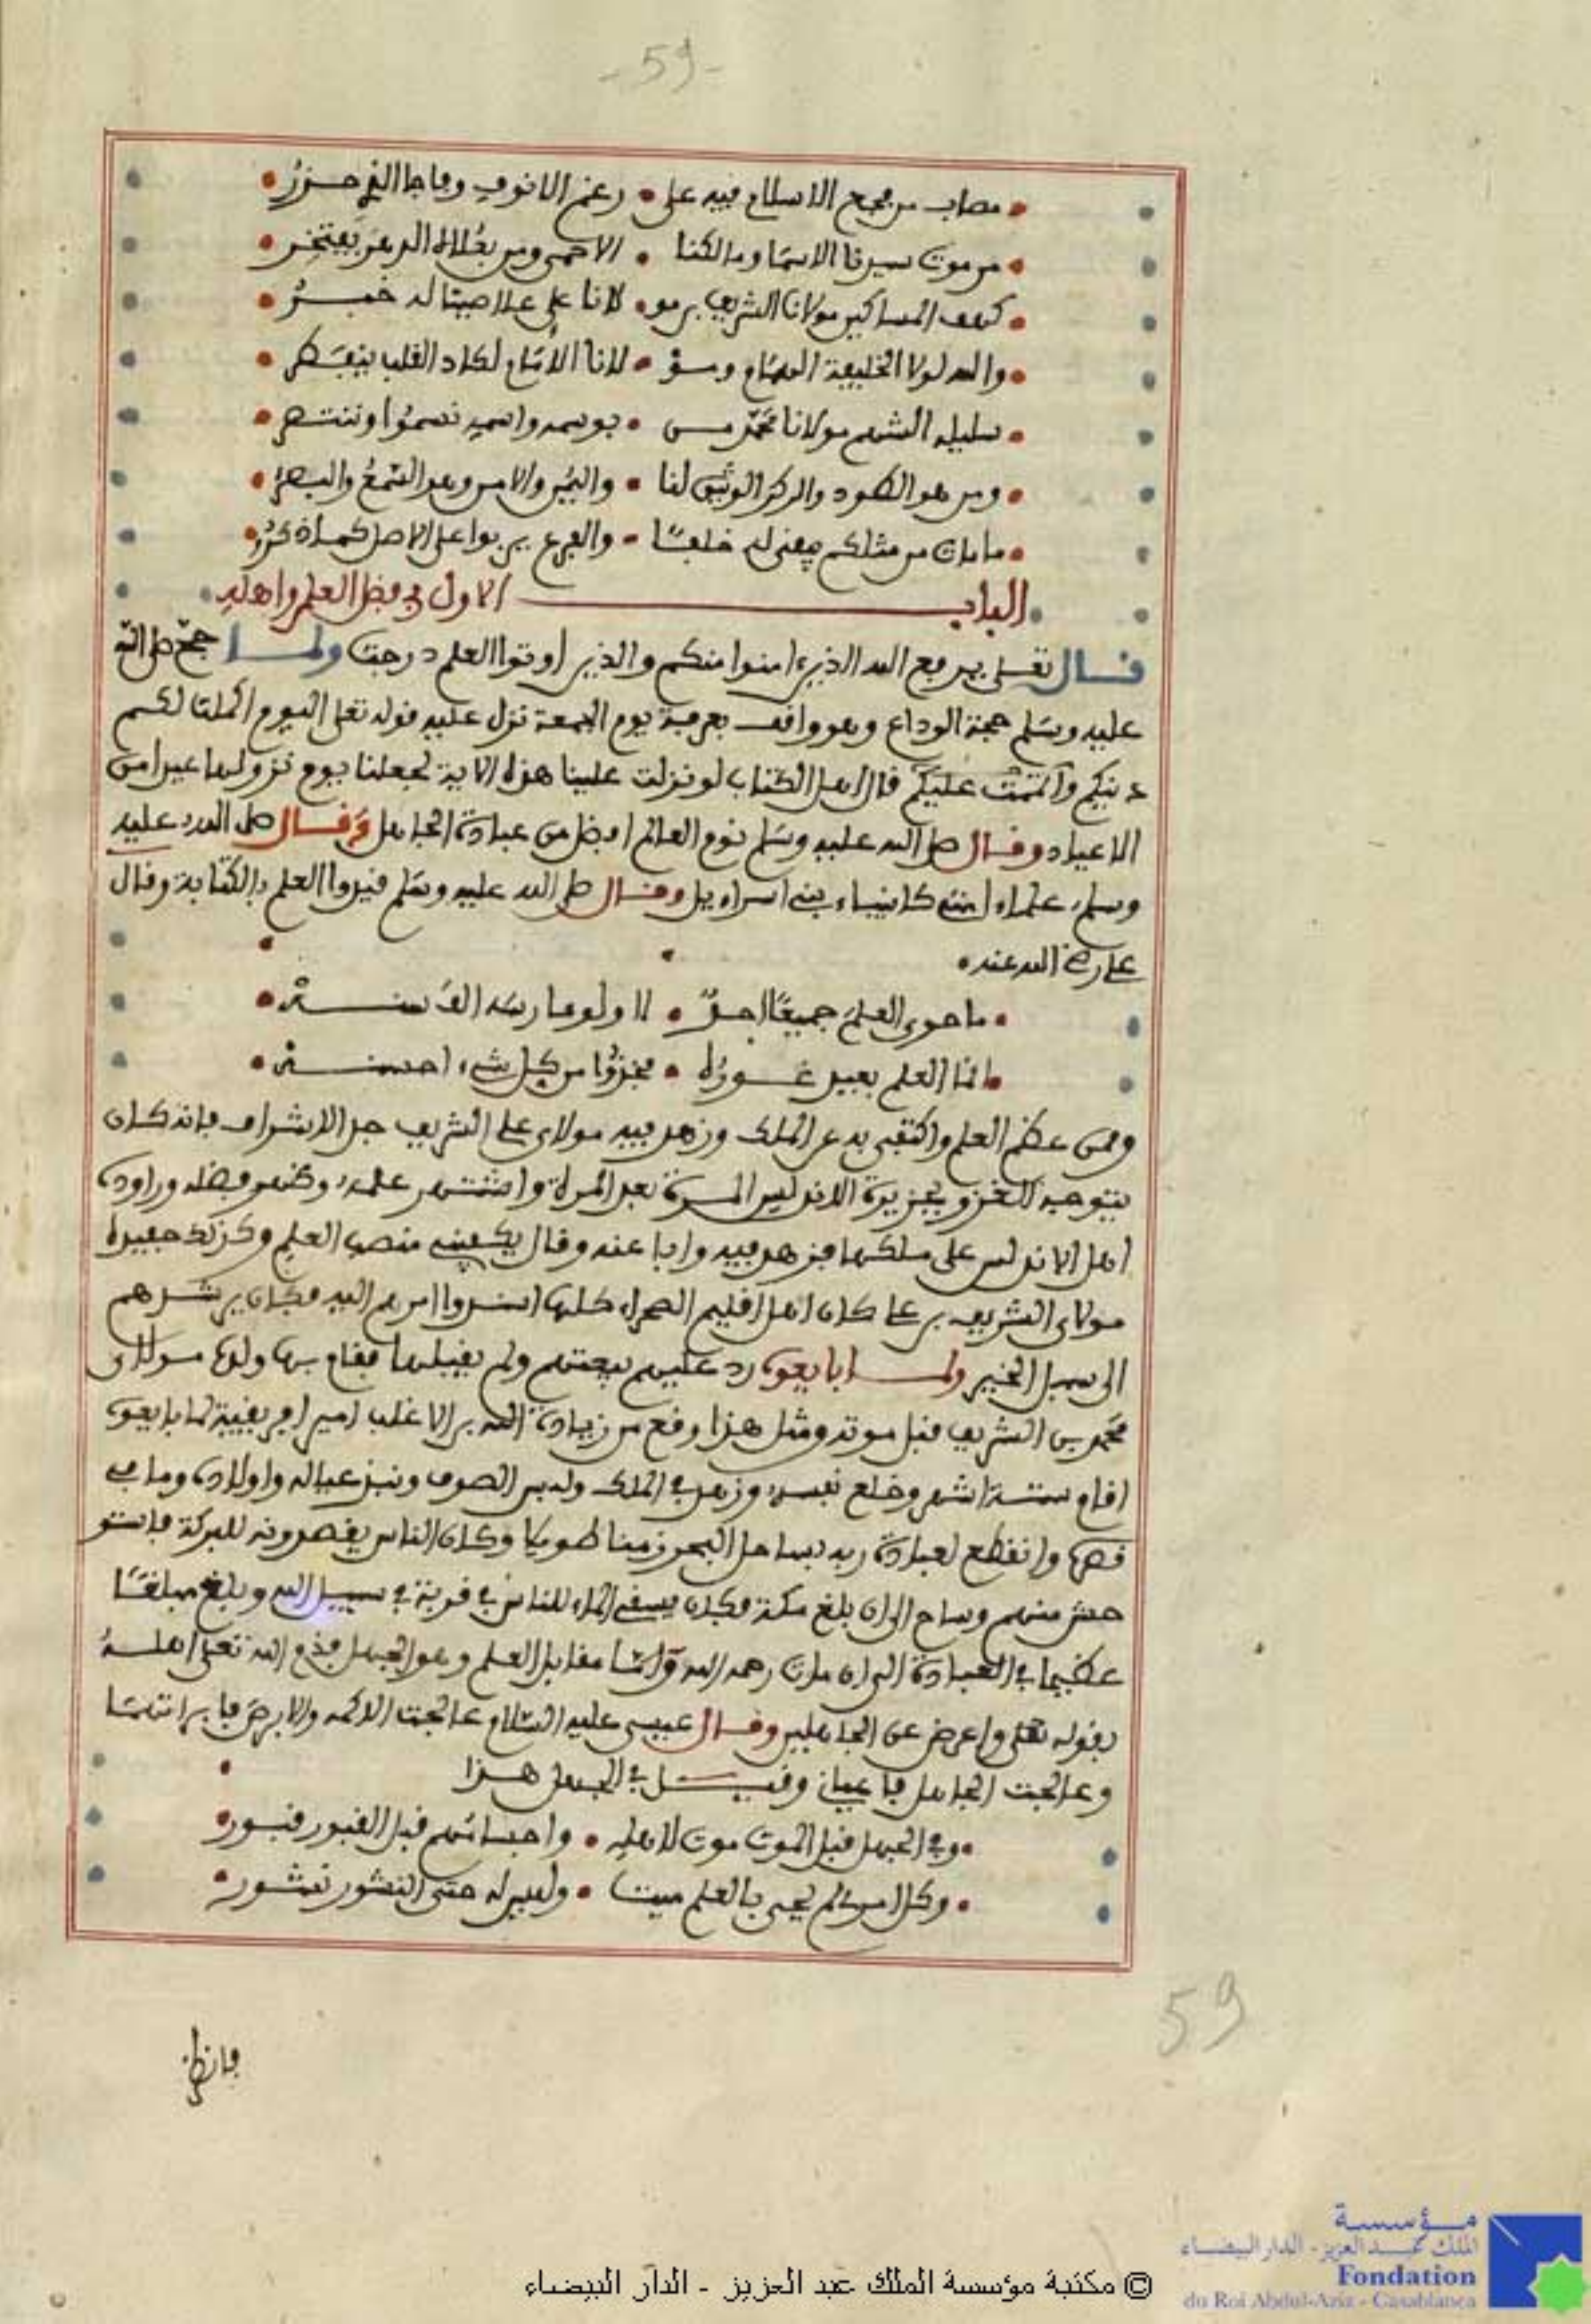 - 59 -
مصاب من فجع الاسلام فيه على • رغم الانوف وفاجا الفي حزر
من موت سيدنا الاسما ومالكنا • الاحمى ومن بعلاه الدهر يفتخر
كهف المساكين مولانا الشريف بن مو • لانا علي علا صيتا له خبر
والله لولا الخليفة الهمام ومو • لانا الامام لكاد القلب ينفطر
سليله الشهم مولانا محمد من • بوسمه واسمه نسموا وننتصر
ومن هو الطود والركن الوثيق لنا • واليمن والامن وهو السمع والبصر
ما مات من مثلكم يبقى له خلفا • والفرع يربوا على الاصل كما ذكروا
الباب الاول في فضل العلم واهله
قال تعلى يرفع الله الذين ءامنوا منكم والذين اوتوا العلم درجت ولما حج صلى الله
عليه وسلم حجة الوداع وهو واقف بعرفة يوم الجمعة نزل عليه قوله تعلى اليوم اكملت لكم
دينكم وأتممت عليكم قال اهل الكتاب لو نزلت علينا هذه الاية لجعلنا يوم نزولها عيدا من
الاعياد وقال صلى الله عليه وسلم نوم العالم افضل من عبادة الجاهل وقال صلى الله عليه
وسلم علماء امتي كانبياء بني اسراءيل وقال صلى الله عليه وسلم قيدوا العلم بالكتابة وقال
علي رضي الله عنه •
ما حوى العلم جميعا احد • لا ولو مارسه الف سنه
انما العلم بعيد غوره • فخذوا من كل شيء احسنه
وممن عظم العلم واكتفى به عن الملك وزهد فيه مولاي علي الشريف جد الاشراف فانه كان
يتوجه للغزو بجزيرة الاندلس المرة بعد المرة واشتهر علمه وظهر فضله وراوده
اهل الاندلس على ملكها فزهد فيه وابا عنه وقال يكفيني منصب العلم وكذلك حفيده
مولاي الشريف بن علي كان اهل اقليم الصحراء كلها اسندوا امرهم اليه فكان يرشدهم
الى سبل الخير ولما بايعوه رد عليهم بيعتهم ولم يقبلها فقام بها ولده مولاي
محمد بن الشريف قبل موته ومثل هذا وقع من زيادة الله بن الاغلب امير افريقية لما بايعوه
اقام ستة اشهر وخلع نفسه وزهد في الملك ولبس الصوف ونبذ عياله واولاده وما في
قصره وانقطع لعبادة ربه بساحل البحر زمنا طويلا وكان الناس يقصدونه للبركة فاستو
حش منهم وساح الى ان بلغ مكة فكان يسقي الماء للناس في قربة في سبيل الله وبلغ مبلغا
عظيما في العبادة الى ان مات رحمه الله واما مقابل العلم وهو الجهل فذم الله تعلى اهله
بقوله تعلى واعرض عن الجاهلين وقال عيسى عليه السلام عالجت الاكمه والابرص فابراتهما
وعالجت الجاهل فاعياني وقيل في الجهل هذا
وفي الجهل قبل الموت موت لاهله • واجسامهم قبل القبور قبور
وكل امرئ لم يحيى بالعلم ميت • وليس له حتى النشور نشور
59
فانظر
مؤسسة
الملك عبد العزيز - الدار البيضاء
Fondation
du Roi Abdul-Aziz - Casablanca
© مكتبة مؤسسة الملك عبد العزيز - الدار البيضاء